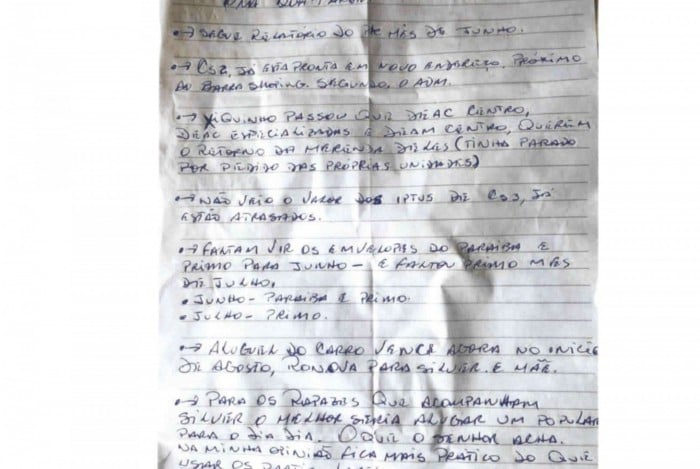 UMA BOA TARDE.
•→ SEGUE RELATÓRIO DO MÊS DE JUNHO.
•→ CS2, JÁ ESTA PRONTA EM NOVO ENDEREÇO. PRÓXIMO
AO BARRA SHOPING. SEGUNDO, O ADM.
•→ XIQUINHO PASSOU QUE DEAC CENTRO,
DEAC ESPECIALIZADAS E DEAM CENTRO, QUEREM
O RETORNO DA MERENDA DELES (TINHA PARADO
POR PEDIDO DAS PRÓPRIAS UNIDADES)
•→ NÃO VEIO O VALOR DOS IPTUS DE CS3, JÁ
ESTÃO ATRASADOS.
•→ FALTAM VIR OS ENVELOPES DO PARAIBA E
PRIMO PARA JUNHO - E FALTOU PRIMO MÊS
DE JULHO.
• JUNHO - PARAIBA E PRIMO.
• JULHO - PRIMO.
•→ ALUGUEL DO CARRO VENCE AGORA NO INÍCIO
DE AGOSTO, RENOVA PARA SILVER. E MÃE.
•→ PARA OS RAPAZES QUE ACOMPANHAM
SILVER O MELHOR SERIA ALUGAR UM POPULAR
PARA O DIA DIA. O QUE O SENHOR ACHA.
NA MINHA OPINIÃO FICA MAIS PRATICO DO QUE
USAR OS